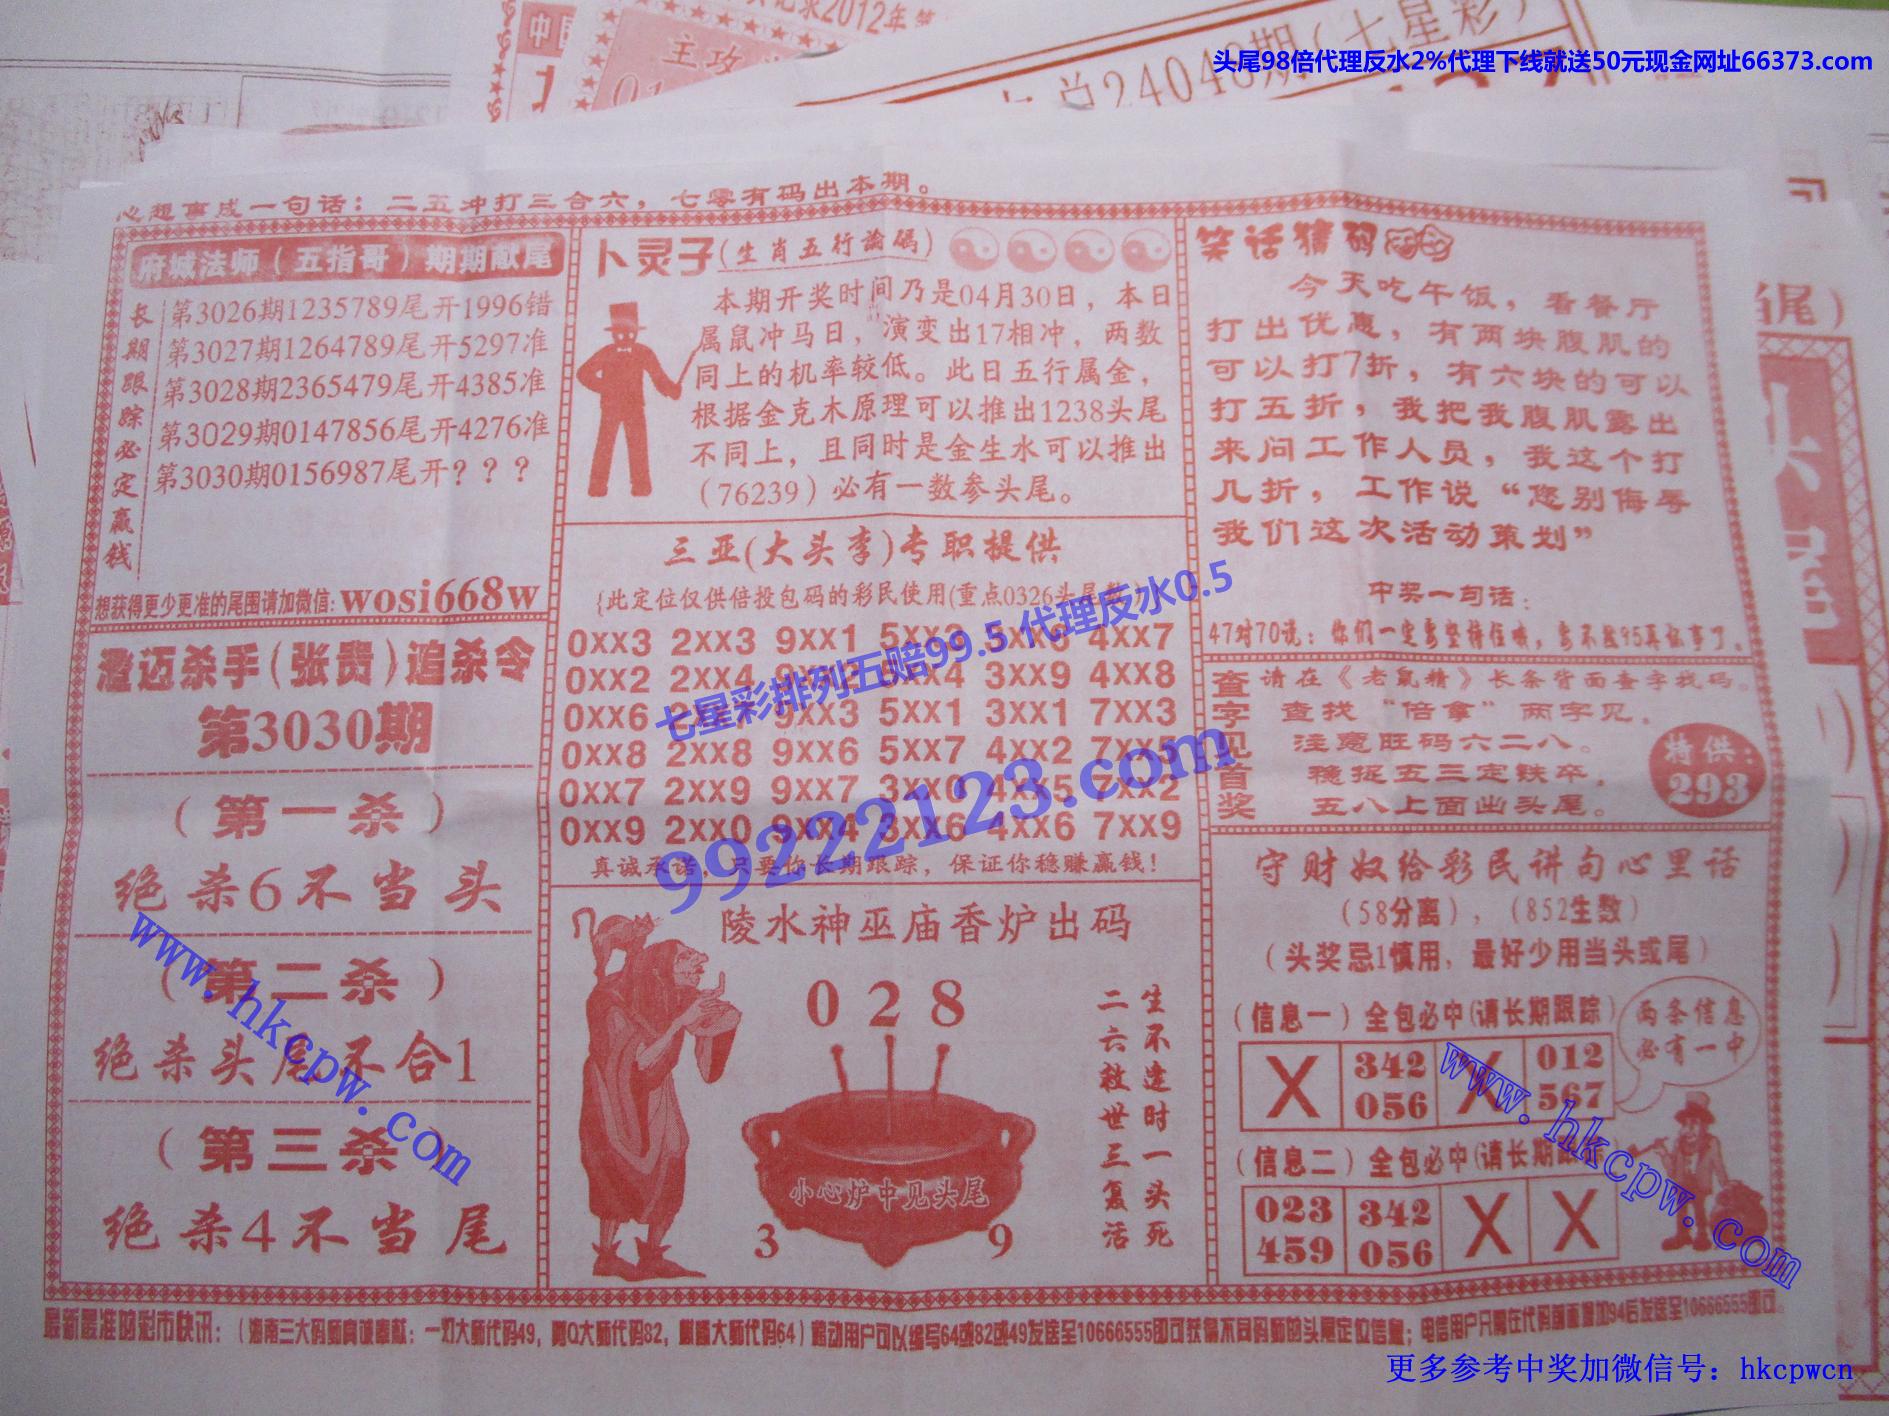 记录2012年第
主攻
24048期(七星彩)
头尾98倍代理反水2%代理下线就送50元现金网址66373.com
心想事成一句话：二五冲打三合六，七零有码出本期。
府城法师（五指哥）期期献尾
长期跟踪必定赢钱
第3026期1235789尾开1996错
第3027期1264789尾开5297准
第3028期2365479尾开4385准
第3029期0147856尾开4276准
第3030期0156987尾开？？？
想获得更少更准的尾围请加微信: wosi668w
澄迈杀手(张贵)追杀令
第3030期
（第一杀）
绝杀6不当头
（第二杀）
绝杀头尾不合1
（第三杀）
绝杀4不当尾
卜灵子(生肖五行论码)
本期开奖时间乃是04月30日，本日
属鼠冲马日，演变出17相冲，两数
同上的机率较低。此日五行属金，
根据金克木原理可以推出1238头尾
不同上，且同时是金生水可以推出
（76239）必有一数参头尾。
三亚(大头李)专职提供
{此定位仅供倍投包码的彩民使用(重点0326头尾数)}
0xx3 2xx3 9xx1 5xx3 3xx6 4xx7
0xx2 2xx4 9xx2 5xx4 3xx9 4xx8
0xx6 2xx7 9xx3 5xx1 3xx1 7xx3
0xx8 2xx8 9xx6 5xx7 4xx2 7xx5
0xx7 2xx9 9xx7 3xx0 4xx5 7xx2
0xx9 2xx0 9xx4 3xx6 4xx6 7xx9
真诚承诺，只要你长期跟踪，保证你稳赚赢钱！
七星彩排列五赔99.5 代理反水0.5
99222123.com
陵水神巫庙香炉出码
028
生不逢时一头死
二六救世三复活
小心炉中见头尾
3 9
笑话猜码
今天吃午饭，看餐厅
打出优惠，有两块腹肌的
可以打7折，有六块的可以
打五折，我把我腹肌露出
来问工作人员，我这个打
几折，工作说“您别侮辱
我们这次活动策划”
中奖一句话：
47对70说：你们一定要坚持住哦，要不然95再似事了。
查字见首奖
请在《老鼠精》长条背面查字找码。
查找“倍拿”两字见，
注意旺码六二八。
稳捉五三定铁卒，
五八上面出头尾。
特供：
293
守财奴给彩民讲句心里话
（58分离），（852生数）
（头奖忌1慎用，最好少用当头或尾）
（信息一）全包必中(请长期跟踪)
X 342 056 X 012 567
两条信息
必有一中
（信息二）全包必中(请长期跟踪)
023 459 342 056 X X
www.hkcpw.com
www.hkcpw.com
最新最准的彩市快讯：（海南三大码师真诚奉献：一灯大师代码49，阿Q大师代码82，麒麟大师代码64）移动用户可以编写64或82或49发送至10666555即可获得不同码师的头尾定位信息；电信用户只需在代码前面增加94后发送至10666555即可。
更多参考中奖加微信号：hkcpwcn